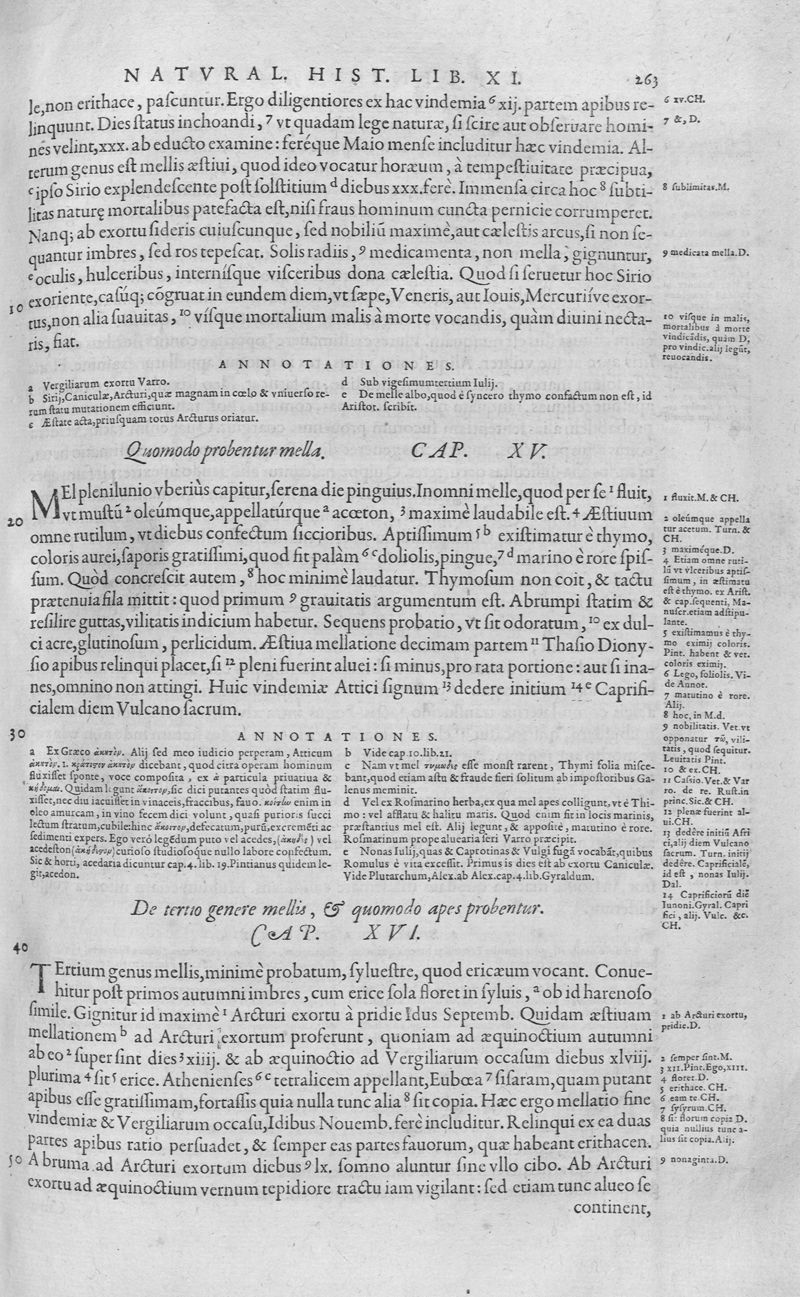 NATVRAL. HIST. LIB. XI. 263
le, non erithace, pascuntur. Ergo diligentiores ex hac vindemia ⁶ xij. partem apibus re-
linquunt. Dies status inchoandi, ⁷ vt quadam lege naturæ, si scire aut obseruare homi-
nes velint, xxx. ab educto examine: feréque Maio mense includitur hæc vindemia. Al-
terum genus est mellis æstiui, quod ideo vocatur horæum, à tempestiuitate præcipua,
ᶜ ipso Sirio explendescente post solstitium ᵈ diebus xxx. ferè. Immensa circa hoc ⁸ subti-
litas naturę mortalibus patefacta est, nisi fraus hominum cuncta pernicie corrumperet.
Nanq; ab exortu sideris cuiuscunque, sed nobiliũ maximè, aut cælestis arcus, si non se-
quantur imbres, sed ros tepescat. Solis radiis, ⁹ medicamenta, non mella, gignuntur,
ᵉ oculis, hulceribus, internísque visceribus dona cælestia. Quod si seruetur hoc Sirio
10 exoriente, casúq; cõgruat in eundem diem, vt sæpe, Veneris, aut Iouis, Mercuriíve exor-
tus, non alia suauitas, ¹⁰ vísque mortalium malis à morte vocandis, quàm diuini necta-
ris, fiat.
6 xv. CH.
7 &, D.
8 sublimitas. M.
9 medicata mella. D.
10 vísque in malis,
mortalibus à morte
vindicãdis, quàm D,
pro vindic. alij legũt,
reuocandis.
ANNOTATIONES.
a Vergiliarum exortu Varro.
b Sirij, Caniculæ, Arcturi, quæ magnam in cœlo & vniuerso re-
rum statu mutationem efficiunt.
c Æstate acta, priusquam totus Arcturus oriatur.
d Sub vigesimumtertium Iulij.
e De melle albo, quod è syncero thymo confactum non est, id
Aristot. scribit.
Quomodo probentur mella. CAP. XV.
MEl plenilunio vberiùs capitur, serena die pinguius. In omni melle, quod per se ¹ fluit,
20 vt mustũ ² oleúmque, appellatúrque ᵃ acœton, ³ maximè laudabile est. ⁴ Æstiuum
omne rutilum, vt diebus confectum siccioribus. Aptissimum ⁵ ᵇ existimatur è thymo,
coloris aurei, saporis gratissimi, quod fit palàm ⁶ ᶜ doliolis, pingue, ⁷ ᵈ marino è rore spis-
sum. Quòd concrescit autem, ⁸ hoc minimè laudatur. Thymosum non coit, & tactu
prætenuia fila mittit: quod primum ⁹ grauitatis argumentum est. Abrumpi statim &
resilire guttas, vilitatis indicium habetur. Sequens probatio, vt sit odoratum, ¹⁰ ex dul-
ci acre, glutinosum, perlicidum. Æstiua mellatione decimam partem ¹¹ Thasio Diony-
sio apibus relinqui placet, si ¹² pleni fuerint aluei: si minus, pro rata portione: aut si ina-
nes, omnino non attingi. Huic vindemiæ Attici signum ¹³ dedere initium ¹⁴ ᵉ Caprifi-
cialem diem Vulcano sacrum.
1 fluxit. M. & CH.
2 oleúmque appella
tur acetum. Turn. &
CH.
3 maximéque. D.
4 Etiam omne ruti-
lũ vt vlceribus aptis-
simum, in æstimatu
est è thymo. ex Arist.
& cap. sequenti, Ma-
nuscr. etiam adstipu-
lante.
5 existimamus è thy-
mo eximij coloris.
Pint. habent & vet.
coloris eximij.
6 Lego, foliolis. Vi-
de Annot.
7 matutino è rore.
Alij.
8 hoc. in M. d.
9 nobilitatis. Vet. vt
opponatur τῷ, vili-
tatis, quod sequitur.
Leuitatis Pint.
10 & ex. CH.
11 Cassio. Vet. & Var
ro. de re. Rust. in
princ. Sic. & CH.
12 plenæ fuerint al-
ui. CH.
13 dedêre initiũ Afri
ci, alij diem Vulcano
sacrum. Turn. initij
dedêre. Caprificialẽ,
id est, nonas Iulij.
Dal.
14 Caprificiorũ diẽ
Iunoni. Gyral. Capri
fici, alij. Vulc. &c.
CH.
30 ANNOTATIONES.
a Ex Græco ἄκοιτον. Alij sed meo iudicio perperam, Atticum
dicebant, quod citra operam hominum
fluxisset sponte, voce composita, ex à particula priuatiua &
Quidam legunt ἄκοιτον, sic dici putantes quòd statim flu-
xisset, nec diu iacuisset in vinaceis, fraccibus, fauo. enim in
oleo amurcam, in vino fecem dici volunt, quasi purioris succi
lectum stratum, cubile: hinc ἄκοιτον, defecatum, purũ, excremẽti ac
sedimenti expers. Ego verò legẽdum puto vel acedes, vel
acedeston curioso studiosoque nullo labore confectum.
Sic & horti, acedaria dicuntur cap. 4. lib. 19. Pintianus quidem le-
git, acedon.
b Vide cap. 10. lib. 21.
c Nam vt mel esse monst rarent, Thymi folia misce-
bant, quod etiam astu & fraude fieri solitum ab impostoribus Ga-
lenus meminit.
d Vel ex Rosmarino herba, ex qua mel apes colligunt, vt è Thi-
mo: vel afflatu & halitu maris. Quod enim fit in locis marinis,
præstantius mel est. Alij legunt, & appositè, matutino è rore.
Rosmarinum prope aluearia seri Varro præcipit.
e Nonas Iulij, quas & Caprotinas & Vulgi fugã vocabãt, quibus
Romulus è vita excessit. Primus is dies est ab exortu Caniculæ.
Vide Plutarchum, Alex. ab Alex. cap. 4. lib. Gyraldum.
De tertio genere mellis, & quomodo apes probentur.
CAP. XVI.
40
TErtium genus mellis, minimè probatum, syluestre, quod ericæum vocant. Conue-
hitur post primos autumni imbres, cum erice sola floret in syluis, ᵃ ob id harenoso
simile. Gignitur id maximè ¹ Arcturi exortu à pridie Idus Septemb. Quidam æstiuam
mellationem ᵇ ad Arcturi exortum proferunt, quoniam ad æquinoctium autumni
ab eo ² supersint dies ³ xiiij. & ab æquinoctio ad Vergiliarum occasum diebus xlviij.
plurima ⁴ sit ⁵ erice. Athenienses ⁶ ᶜ tetralicem appellant, Eubœa ⁷ sisaram, quam putant
apibus esse gratissimam, fortassis quia nulla tunc alia ⁸ sit copia. Hæc ergo mellatio fine
vindemiæ & Vergiliarum occasu, Idibus Nouemb. ferè includitur. Relinqui ex ea duas
partes apibus ratio persuadet, & semper eas partes fauorum, quæ habeant erithacen.
50 A bruma ad Arcturi exortum diebus ⁹ lx. somno aluntur sine vllo cibo. Ab Arcturi
exortu ad æquinoctium vernum tepidiore tractu iam vigilant: sed etiam tunc alueo se
continent,
1 ab Arcturi exortu,
pridie. D.
2 semper sint. M.
3 XII. Pint. Ego, XIII.
4 floret. D.
5 erithace. CH.
6 eam te. CH.
7 sysyrum. CH.
8 sit florum copia D.
quia nullius tunc a-
lius sit copia. Alij.
9 nonaginta. D.